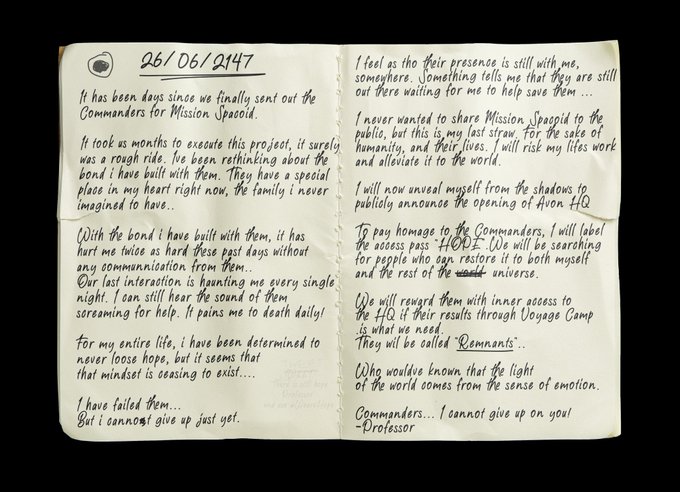 26/06/2147
It has been days since we finally sent out the
Commanders for Mission Spacoid.
It took us months to execute this project, it surely
was a rough ride. I've been rethinking about the
bond i have built with them. They have a special
place in my heart right now, the family i never
imagined to have..
With the bond i have built with them, it has
hurt me twice as hard these past days without
any communnication from them..
Our last interaction is haunting me every single
night. I can still hear the sound of them
screaming for help. It pains me to death daily!
For my entire life, i have been determined to
never loose hope, but it seems that
that mindset is ceasing to exist....
I have failed them...
But i cannot give up just yet.
There is still hope
I feel as tho their presence is still with me,
somewhere. Something tells me that they are still
out there waiting for me to help save them ...
I never wanted to share Mission Spacoid to the
public, but this is my last straw. For the sake of
humanity, and their lives. I will risk my lifes work
and alleviate it to the world.
I will now unveal myself from the shadows to
publicly announce the opening of Avon HQ
To pay homage to the Commanders, I will label
the access pass "HOPE". We will be searching
for people who can restore it to both myself
and the rest of the world universe.
We will reward them with inner access to
the HQ if their results through Voyage Camp
.is what we need.
They wil be called "Remnants"..
Who wouldve known that the light
of the world comes from the sense of emotion.
Commanders... I cannot give up on you!
-Professor